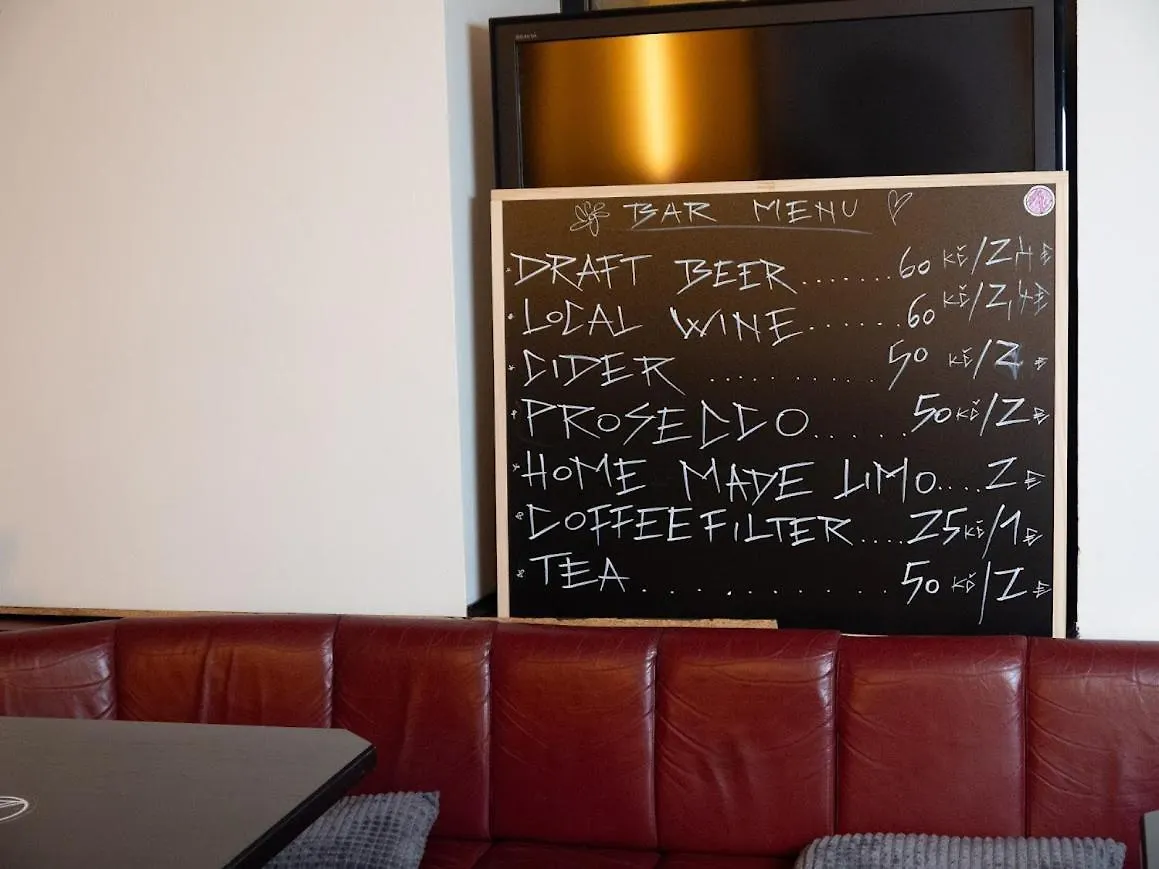 BRAVIA
BAR MENU
DRAFT BEER.......60 Kč/2,4 €
LOCAL WINE.......60 Kč/2,4 €
CIDER ..........50 Kč/2 €
PROSECCO......50 Kč/2 €
HOME MADE LIMO....2 €
COFFEE FILTER....25 Kč/1 €
TEA ...........50 Kč/2 €